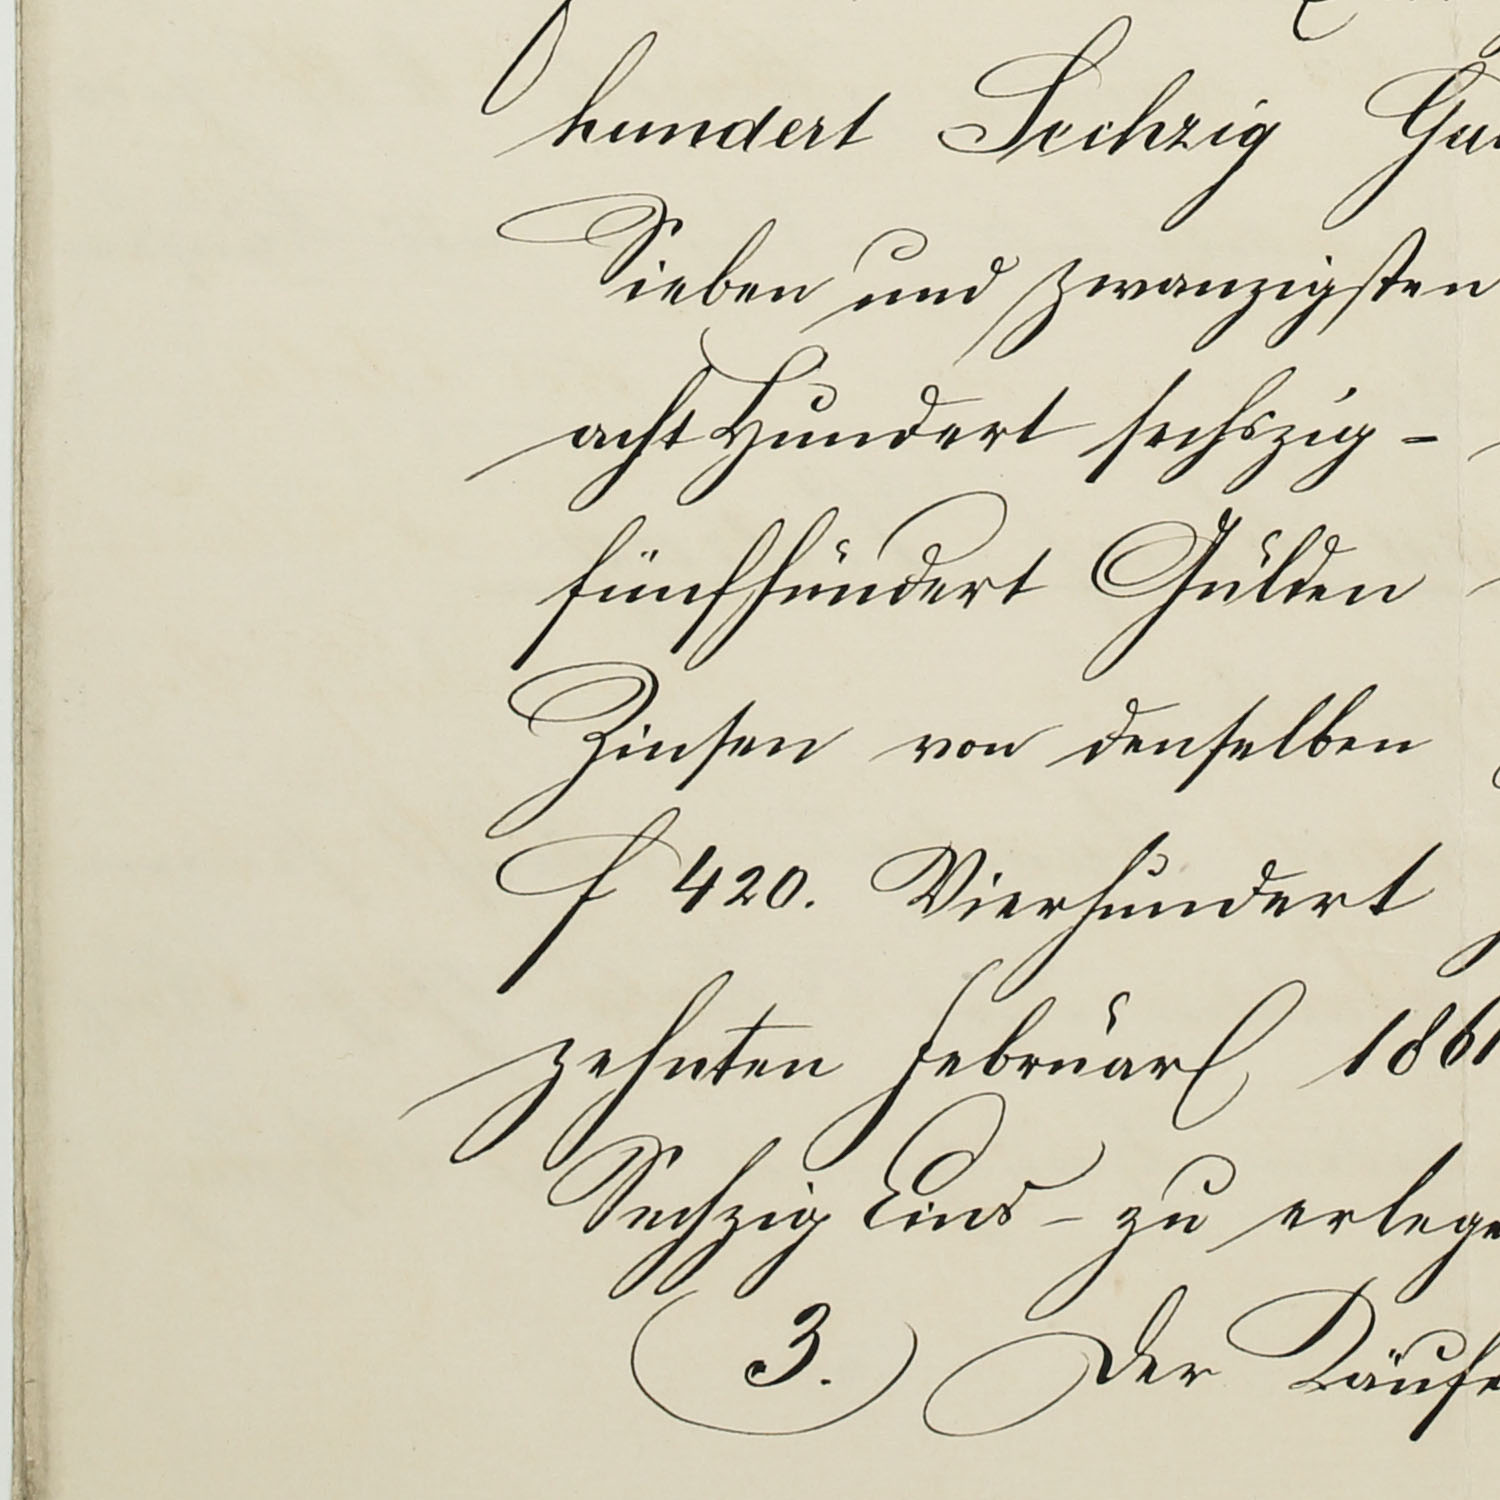 hundert Sechzig
Sieben und zwanzigsten
acht Hundert sechszig -
fünfhundert Gulden
Zinsen von denselben
f 420. Vierhundert
zehnten Februar 1861
Sechzig Eins - zu erlege
3. Der Käufe